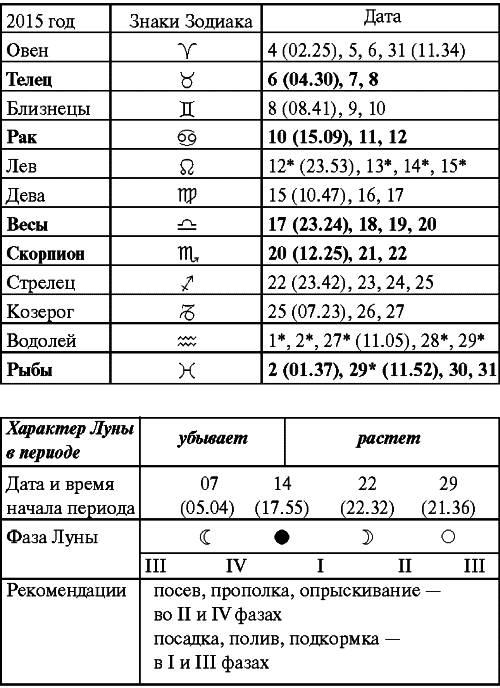 2015 год Знаки Зодиака Дата
Овен ♈ 4 (02.25), 5, 6, 31 (11.34)
Телец ♉ 6 (04.30), 7, 8
Близнецы ♊ 8 (08.41), 9, 10
Рак ♋ 10 (15.09), 11, 12
Лев ♌ 12* (23.53), 13*, 14*, 15*
Дева ♍ 15 (10.47), 16, 17
Весы ♎ 17 (23.24), 18, 19, 20
Скорпион ♏ 20 (12.25), 21, 22
Стрелец ♐ 22 (23.42), 23, 24, 25
Козерог ♑ 25 (07.23), 26, 27
Водолей ♒ 1*, 2*, 27* (11.05), 28*, 29*
Рыбы ♓ 2 (01.37), 29* (11.52), 30, 31
Характер Луны убывает растет
в периоде
Дата и время 07 14 22 29
начала периода (05.04) (17.55) (22.32) (21.36)
Фаза Луны ☾ ● ☽ ○
III IV I II III
Рекомендации посев, прополка, опрыскивание —
во II и IV фазах
посадка, полив, подкормка —
в I и III фазах